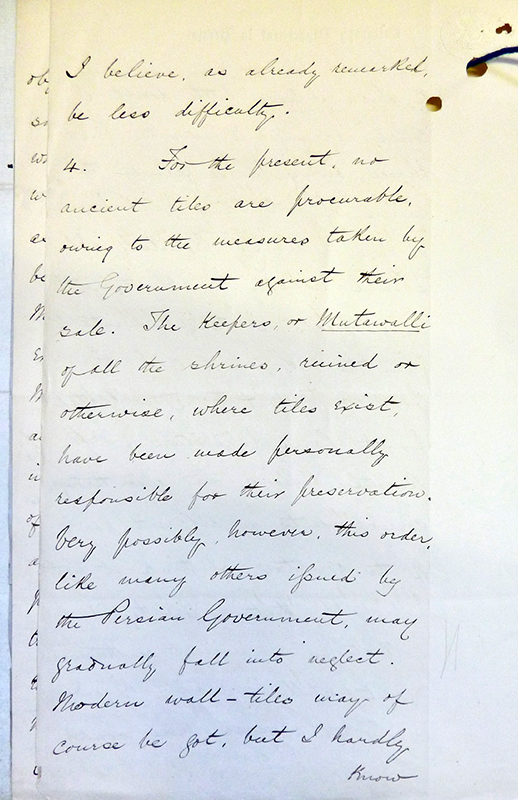 I believe, as already remarked,
be less difficulty.
4. For the present, no
ancient tiles are procurable,
owing to the measures taken by
the Government against their
sale. The Keepers, or Mutawalli
of all the shrines, ruined or
otherwise, where tiles exist,
have been made personally
responsible for their preservation.
Very possibly, however, this order,
like many others issued by
the Persian Government, may
gradually fall into neglect.
Modern wall-tiles may of
course be got, but I hardly
Know